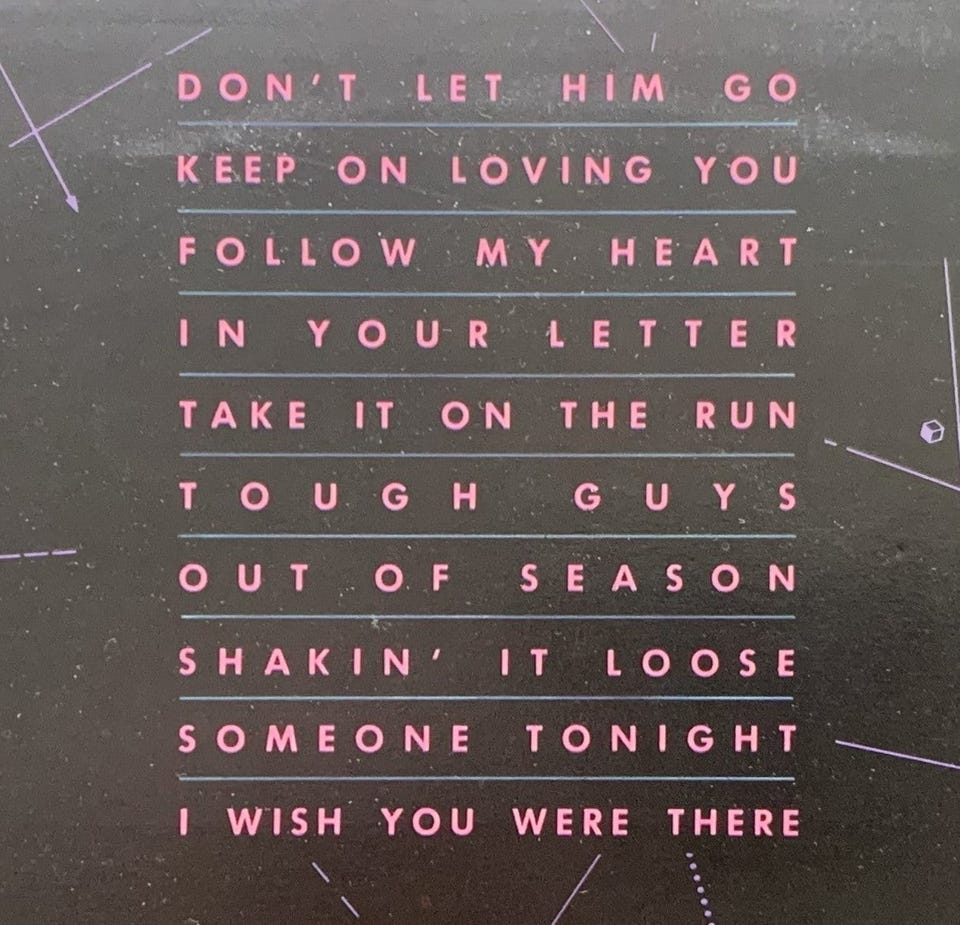 DON'T LET HIM GO
KEEP ON LOVING YOU
FOLLOW MY HEART
IN YOUR LETTER
TAKE IT ON THE RUN
TOUGH GUYS
OUT OF SEASON
SHAKIN' IT LOOSE
SOMEONE TONIGHT
I WISH YOU WERE THERE